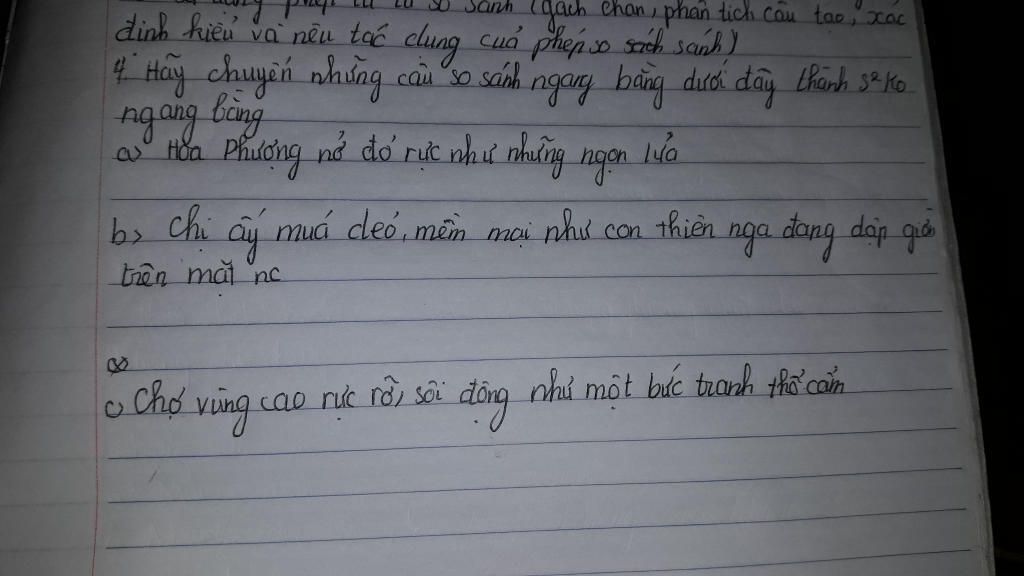 phép tu từ so sánh (gạch chân, phân tích cấu tạo, xác
định kiểu và nêu tác dụng của phép so sách sánh)
4. Hãy chuyển những câu so sánh ngang bằng dưới đây thành s² ko
ngang bằng
a) Hoa Phượng nở đỏ rực như những ngọn lửa
b, Chị ấy múa dẻo, mềm mại như con thiên nga đang dập giờn
trên mặt nc
c, Chợ vùng cao rực rỡ, sôi động như một bức tranh thổ cẩm